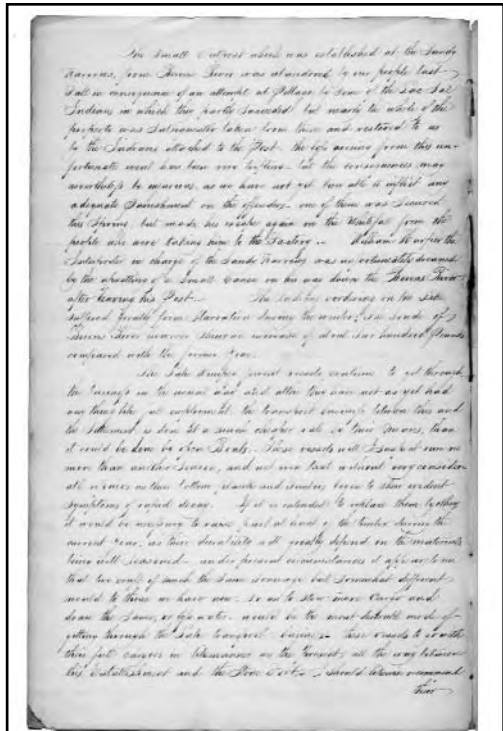 The Small Outpost which was established at the Sandy
Narrows, was abandoned by our people last
fall in consequence of an attempt at Pillage by some of the Lac Sal
Indians in which they partly succeeded but nearly the whole of the
property was Subsequently taken from them and restored to us
by the Indians attached to the Post. the loss arising from this un-
fortunate event has been very trifling - but the consequences may
nevertheless be injurious, as we have not yet been able to inflict any
adequate Punishment on the offenders - one of them was Secured
this Spring, but made his escape again on the from the
people who were taking him to the Factory - William the
in charge of the Sandy Narrows was unfortunately drowned
by the upsetting of a Small Canoe on his way down the River
after leaving his Post - The Indians on the
suffered greatly from Starvation during the winter,
River however Shew an increase of about hundred Pounds
compared with the former year.
The Lake vessels continue to get through
the business in the usual way and altho' they have not as yet had
any thing like full employment, the transport business between this and
the Settlement is done at a much cheaper rate by their means, than
it could be done by open Boats. These vessels will I suspect run no
more than another Season, and not even that without very consider-
able as their bottom planks and timbers begin to shew evident
symptoms of rapid decay. If it is intended to replace them by others
it would be necessary to raise part at least of the timber during the
current year, as their durability will greatly depend on the materials
being well seasoned - under present circumstances it appears to me
that two vessels of much the Same tonnage but Somewhat different
mould to those we have now, so as to stow more Cargo and
draw the Same, or less water, would be the most desirable mode of
getting through the Lake transport business - these vessels to
their full cargoes in as at present, all the way between
this Establishment and the Stone Fort. I should recommend
their